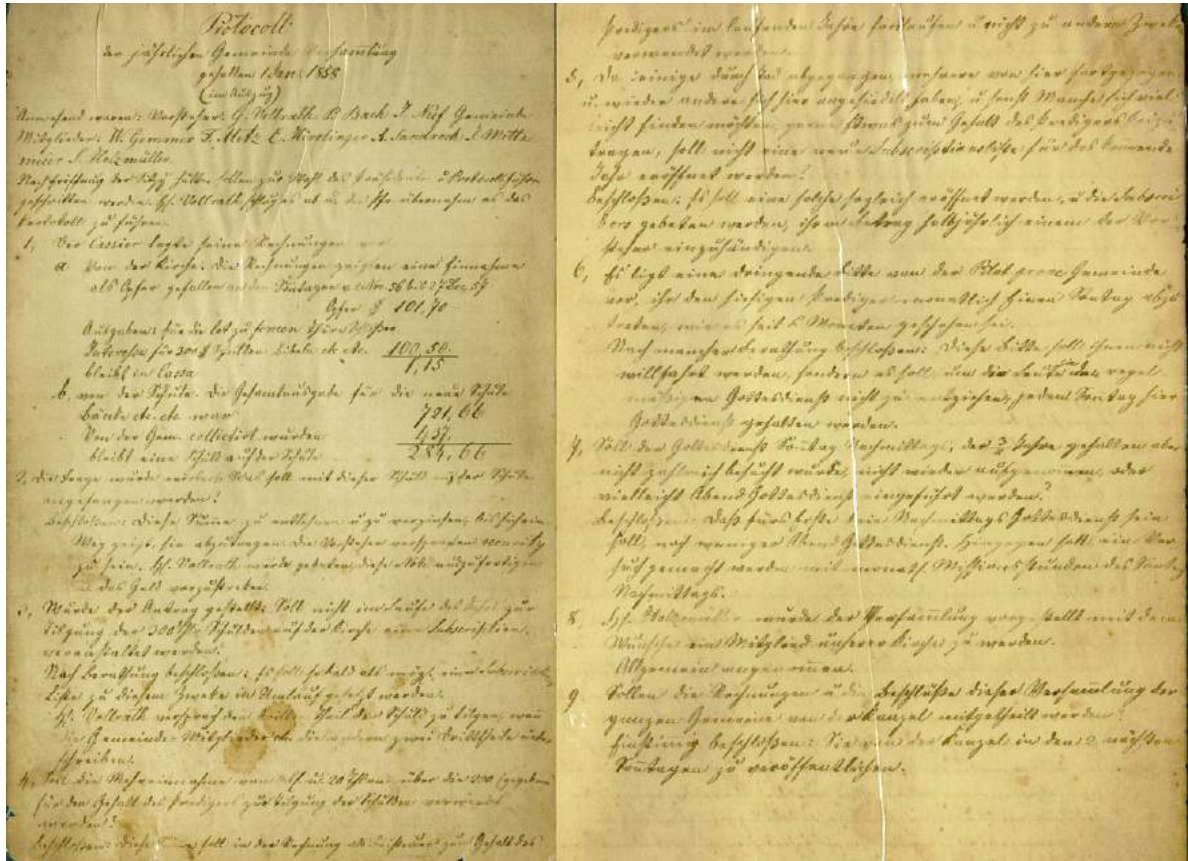 Protocoll
der jährlichen Gemeinde Versammlung
gehalten 1 Jan. 1858
(im Auszug)
Anwesend waren: Vorsteher: G. Vollrath B. Bach J. Neef Gemeinde
Mitglieder: W. Gommer F. Metz C. Hirrlinger A. Sandrock
J. Holzmüller.
Nach Eröffnung der Sitzung sollte zur Wahl des Präsidenten u Protocollführers
geschritten werden. H. Vollrath schlug es ab u. übernahm es das
Protokoll zu führen.
1, Der Cassier legte seine Rechnungen vor
a Von der Kirche. Die Rechnungen zeigten eine Einnahme
als Opfer gefallen an den Sontagen v. 56 bis 27 Dec. 57
Opfer $ 101,70
Ausgaben: für die Lot zu fencen Thüre
Interessen für 300 $ Schulden etc. etc. 100,50.
bleibt in Cassa 1,15
b, von der Schule. Die Gesamtausgabe für die neue Schule
Bänke etc. etc war 721,66
Von der Gem. collectirt wurden 437.
bleibt eine Schuld auf der Schule 284,66
2, Die Frage wurde was soll mit dieser Schuld auf der Schule
angefangen werden?
Beschloßen: Diese Summe zu entlehnen u zu verzinsen, bis sich ein
Weg zeigt, sie abzutragen. Die Vorsteher versprechen security
zu sein. H. Vollrath wurde gebeten, diese Note auszufertigen
u das Geld vorzustrecken.
3, Wurde der Antrag gestellt: Soll nicht im Laufe des Jahres zur
Tilgung der 300 Schulden auf der Kirche eine Subscription
veranstaltet werden?
Nach Berathung beschloßen: Es soll sobald als mögl. eine Subscriptions
Liste zu diesem Zwecke in Umlauf gesetzt werden.
H. Vollrath versprach den dritten Theil der Schuld zu tilgen, wenn
die Gemeinde Mitglieder die andern zwei Drittheile unter
schreiben.
4, Soll die Mehreinnahme von 20 über die 200
für den Gehalt des Predigers zur Tilgung der Schulden verwendet
werden?
Beschloßen: Diese soll in der Rechnung als zum Gehalt des
Predigers im laufenden Jahre fortlaufen u nicht zu andern Zwecken
verwendet werden.
5, Da einige durch Tod abgegangen, mehrere von hier fortgezogen
u. wieder andere sich hier angesiedelt haben, u sonst Manche sich viel
leicht finden möchten, gerne Etwas zum Gehalt des Predigers beizu
tragen, soll nicht eine neue Subscriptionsliste für das kommende
Jahr eröffnet werden?
Beschloßen: Es soll eine solche sogleich eröffnet werden, u die Subscri
bers gebeten werden, ihren Betrag halbjährlich einem der Vor
steher einzuhändigen.
6, Es liegt eine dringende Bitte von der Pilot grove Gemeinde
vor, ihr den hiesigen Prediger monatlich Einen Sontag abzu
treten, wie es seit 6 Monaten geschehen sei.
Nach mancher Berathung beschloßen: Diese Bitte soll ihnen nicht
willfahrt werden, sondern es soll, um die Leute dem regel
mäßigen Gottesdienst nicht zu entziehen, jeden Sontag hier
Gottesdienst gehalten werden.
7, Soll der Gottesdienst Sontag Nachmittags, der Jahre gehalten aber
nicht zahlreich besucht wurde, nicht wieder aufgenommen, oder
vielleicht Abend Gottesdienst eingeführt werden?
Beschloßen: Daß fürs Erste kein Nachmittags Gottesdienst sein
soll, noch weniger Abend Gottesdienst. Hingegen soll ein Ver
such gemacht werden mit monatl. Missionsstunden des Sontag
Nachmittags.
8, H. Holzmüller wurde der Versammlung vorgestellt mit dem
Wunsche ein Mitglied unserer Kirche zu werden.
Allgemein angenommen.
9 Sollen die Rechnungen u die Beschlüße dieser Versammlung der
ganzen Gemeine von der Kanzel mitgetheilt werden?
Einstimmig beschloßen: Sie von der Kanzel in den 2 nächsten
Sontagen zu veröffentlichen.